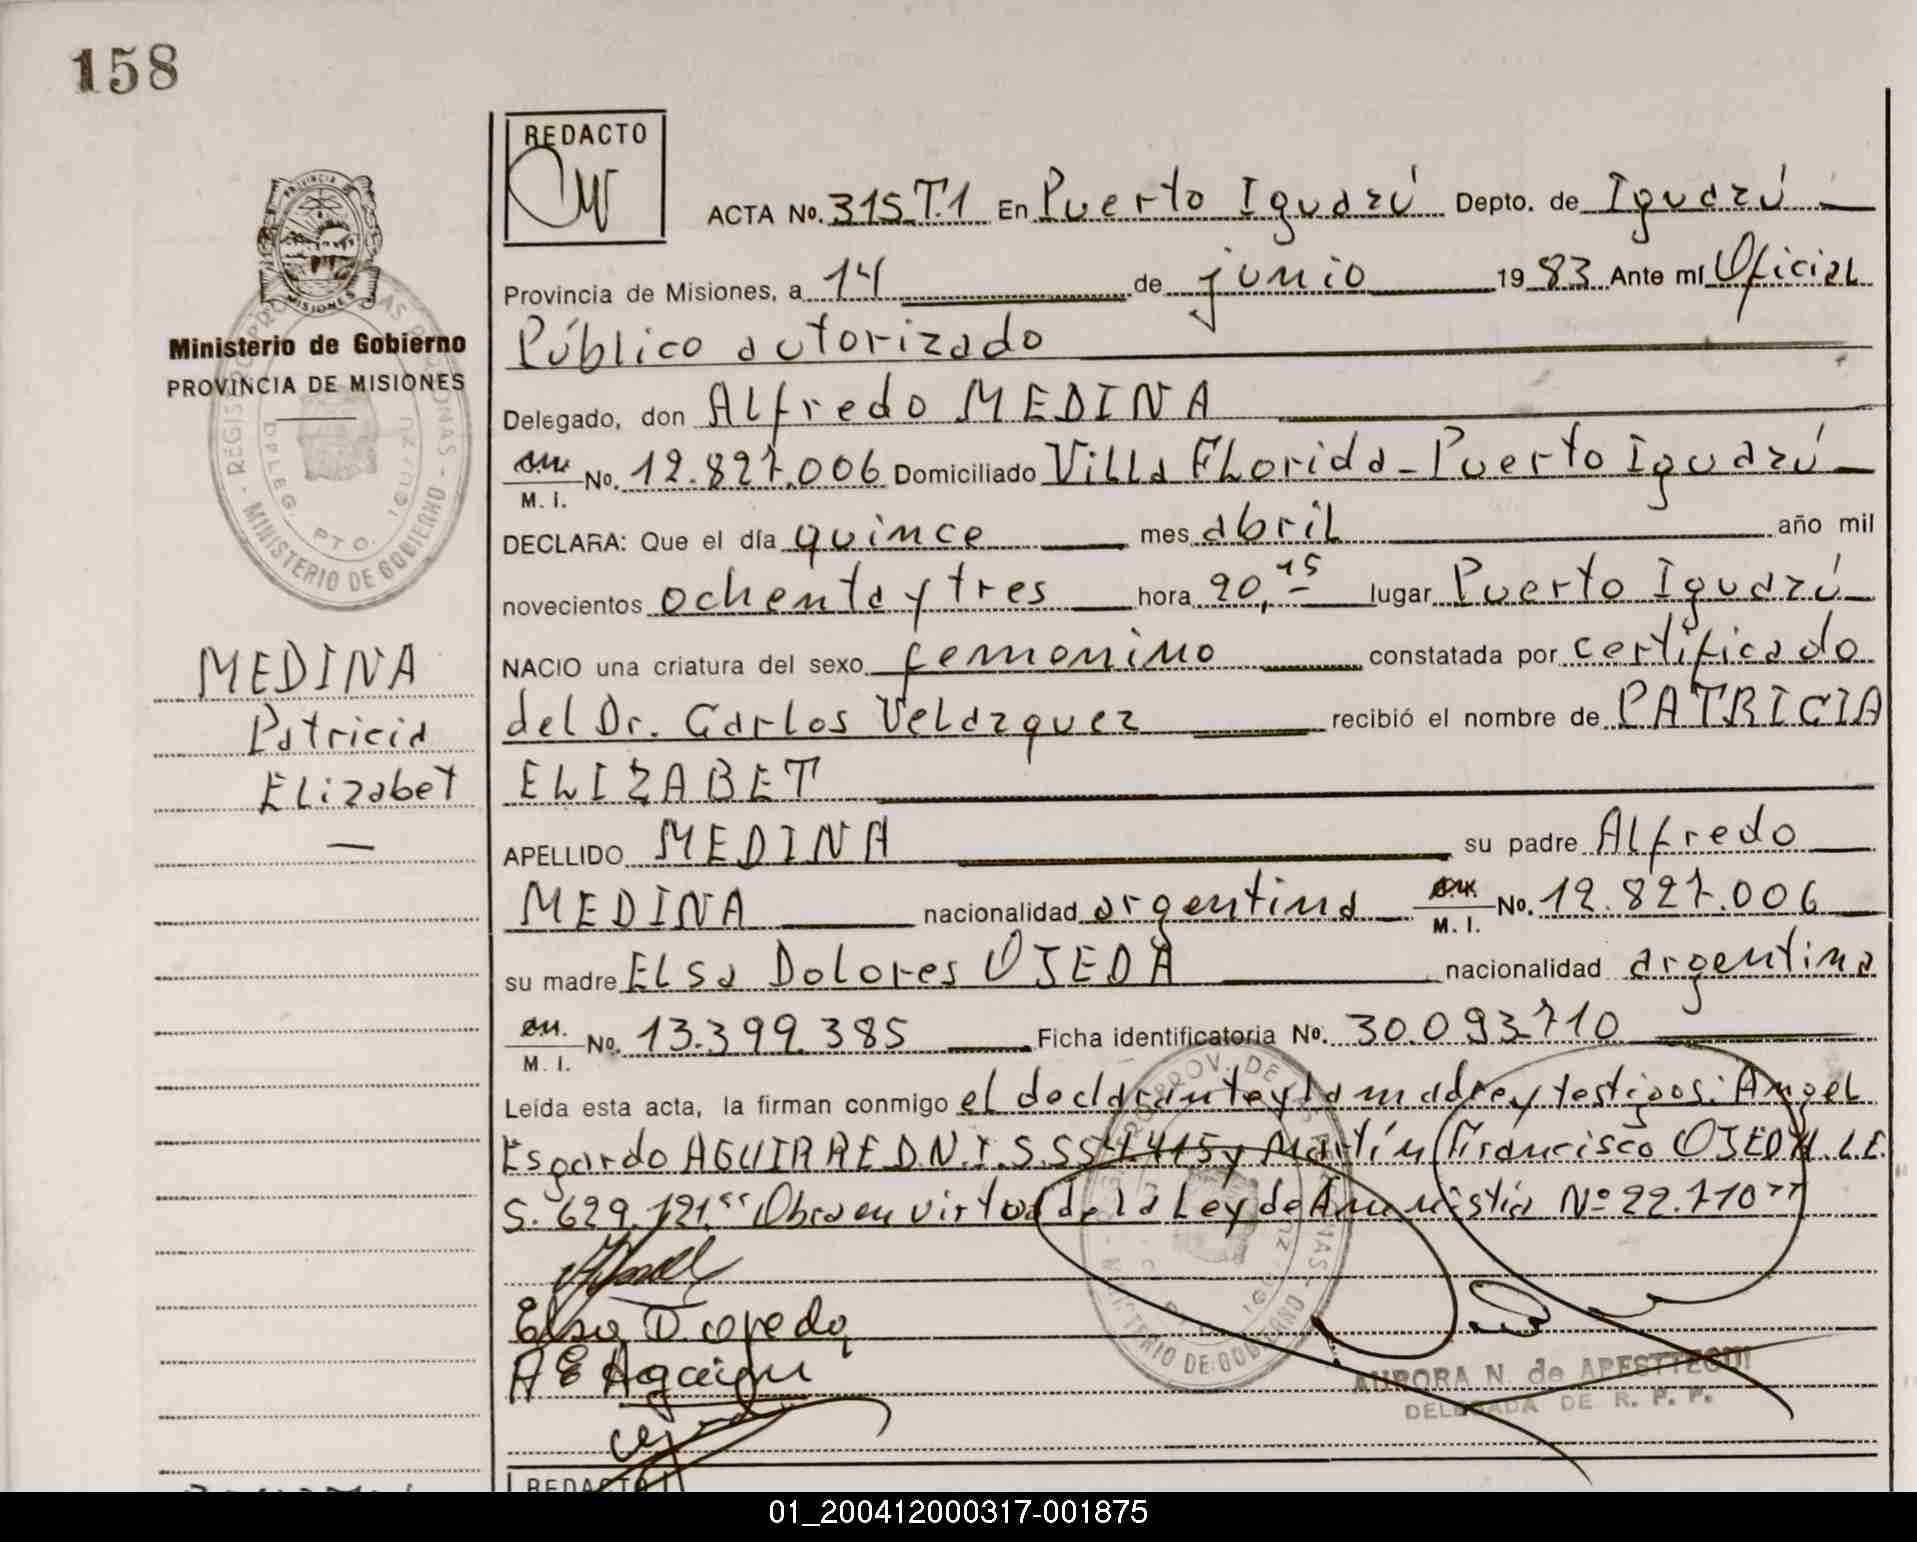 158
REDACTO
ACTA No. 315 T.1 En Puerto Iguazú Depto. de Iguazú
Provincia de Misiones, a 14 de junio 1983 Ante mí Oficial
Público autorizado
Ministerio de Gobierno
PROVINCIA DE MISIONES
Delegado, don Alfredo MEDINA
M. I. No. 12.827.006 Domiciliado Villa Florida - Puerto Iguazú
DECLARA: Que el día quince mes abril año mil
novecientos ochenta y tres hora 20,15 lugar Puerto Iguazú
NACIO una criatura del sexo femenino constatada por certificado
del Dr. Carlos Velazquez recibió el nombre de PATRICIA
ELIZABET
MEDINA
Patricia
Elizabet
APELLIDO MEDINA su padre Alfredo
MEDINA nacionalidad argentina M. I. No. 12.827.006
su madre Elsa Dolores OJEDA nacionalidad argentina
M. I. No. 13.399.385 Ficha identificatoria No. 30.093.710
Leída esta acta, la firman conmigo el declarante y la madre y testigos: Angel
Esgardo AGUIRRE D.N.I. y Martín Francisco OJEDA L.E.
"Obra en virtud de la Ley de Amnistía Nº 22.710"
Elsa D. ojeda
A E Aguirre
AURORA N. de APESTTEGUI
DELEGADA DE R. P. P.
REDACTO
01_200412000317-001875